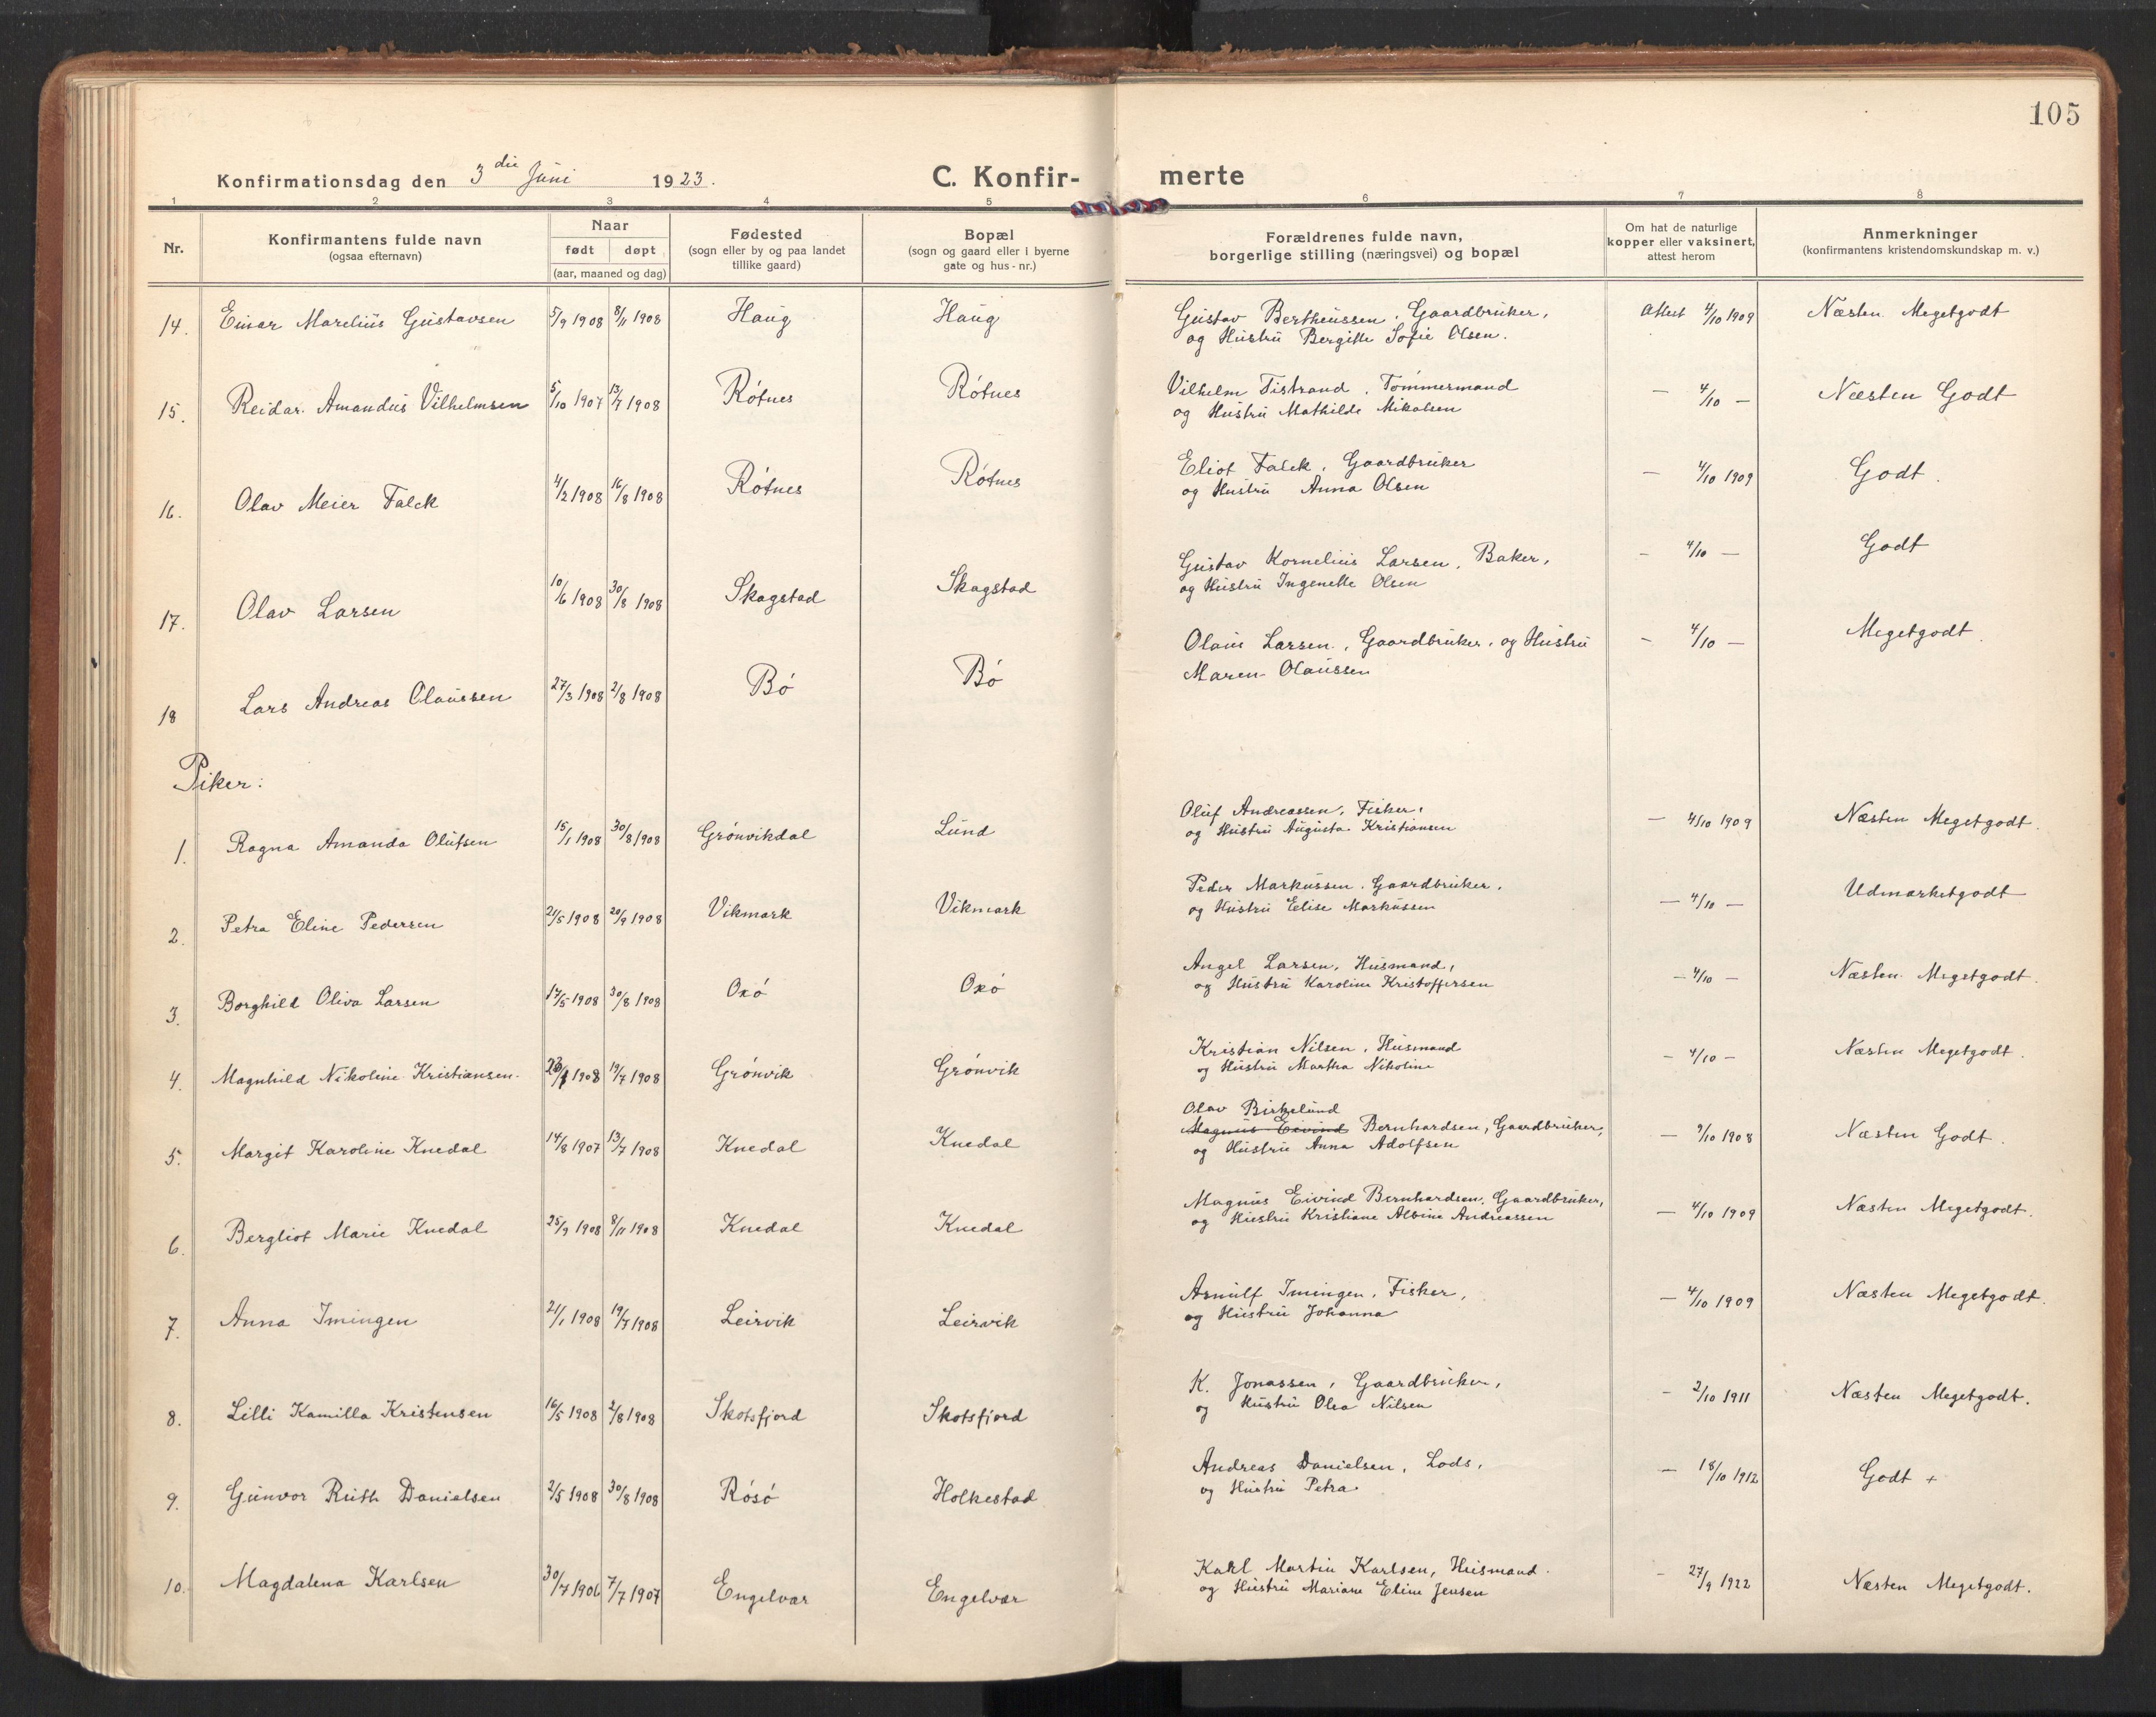 105
Konfirmationsdag den 3die Juni 1923.
C. Konfir- merte
1 2 3 4 5 6 7 8
Nr.
Konfirmantens fulde navn
(ogsaa efternavn)
Naar
født døpt
(aar, maaned og dag)
Fødested
(sogn eller by og paa landet
tillike gaard)
Bopæl
(sogn og gaard eller i byerne
gate og hus-nr.)
Forældrenes fulde navn,
borgerlige stilling (næringsvei) og bopæl
Om hat de naturlige
kopper eller vaksinert,
attest herom
Anmerkninger
(konfirmantens kristendomskundskap m. v.)
14. Einar Marelius Gustavsen 5/9 1908 8/11 1908 Haug Haug Gustav Bertheussen, Gaardbruker, Attest 4/10 1909 Næsten Megetgodt
og Hustru Bergitte Sofie Olsen.
15. Reidar Amandus Vilhelmsen 5/10 1907 13/7 1908 Rótnes Rótnes Vilhelm Tistrand, Tømmermand — 4/10 — Næsten Godt
og Hustru Mathilde Mikalsen
16. Olav Meier Falck 4/2 1908 16/8 1908 Rótnes Rótnes Eliot Falck, Gaardbruker — 4/10 1909 Godt.
og Hustru Anna Olsen
17. Olav Larsen 10/6 1908 30/8 1908 Skagstad Skagstad Gustav Kornelius Larsen, Baker, — 4/10 — Godt
og Hustru Ingenette Olsen
18 Lars Andreas Olaussen 27/3 1908 2/8 1908 Bó Bó Olaus Larsen, Gaardbruker, og Hustru — 4/10 — Megetgodt.
Maren Olaussen
Piker:
1. Ragna Amanda Olufsen 15/1 1908 30/8 1908 Grónvikdal Lund Oluf Andreassen, Fisker, — 4/10 1909 Næsten Megetgodt.
og Hustru Augusta Kristiansen
2. Petra Eline Pedersen 21/5 1908 20/9 1908 Vikmark Vikmark Peder Markussen, Gaardbruker, — 4/10 — Udmerketgodt
og Hustru Elise Markussen
3. Borghild Oliva Larsen 17/5 1908 30/8 1908 Oxó Oxó Angel Larsen, Husmand, — 4/10 — Næsten Megetgodt.
og Hustru Karoline Kristoffersen
4. Magnhild Nikoline Kristiansen 1908 19/7 1908 Grónvik Grónvik Kristian Nilsen, Husmand — 4/10 — Næsten Megetgodt.
og Hustru Martha Nikoline
Olav Birkelund
5. Margit Karoline Knedal 14/8 1907 13/7 1908 Knedal Knedal Magnus Eivind Bernhardsen, Gaardbruker, — 9/10 1908 Næsten Godt.
og Hustru Anna Adolfsen
6. Bergliot Marie Knedal 25/9 1908 8/11 1908 Knedal Knedal Magnus Eivind Bernhardsen, Gaardbruker, — 4/10 1909 Næsten Megetgodt.
og Hustru Kristiane Albine Andreassen
7. Anna Imingen 21/1 1908 19/7 1908 Leirvik Leirvik Arnulf Imingen, Fisker, — 4/10 1909 Næsten Megetgodt.
og Hustru Johanna
8. Lilli Kamilla Kristensen 16/5 1908 2/8 1908 Skotsfjord Skotsfjord K. Jonassen, Gaardbruker, — 2/10 1911 Næsten Megetgodt.
og Hustru Olea Nilsen
9. Gunvor Ruth Danielsen 2/5 1908 30/8 1908 Rósó Holkestad Andreas Danielsen, Lods, — 18/10 1912 Godt +
og Hustru Petra
10. Magdalena Karlsen 30/7 1906 7/7 1907 Engelvær Engelvær Karl Martin Karlsen, Husmand. — 27/9 1922 Næsten Megetgodt.
og Hustru Mariane Eline Jensen